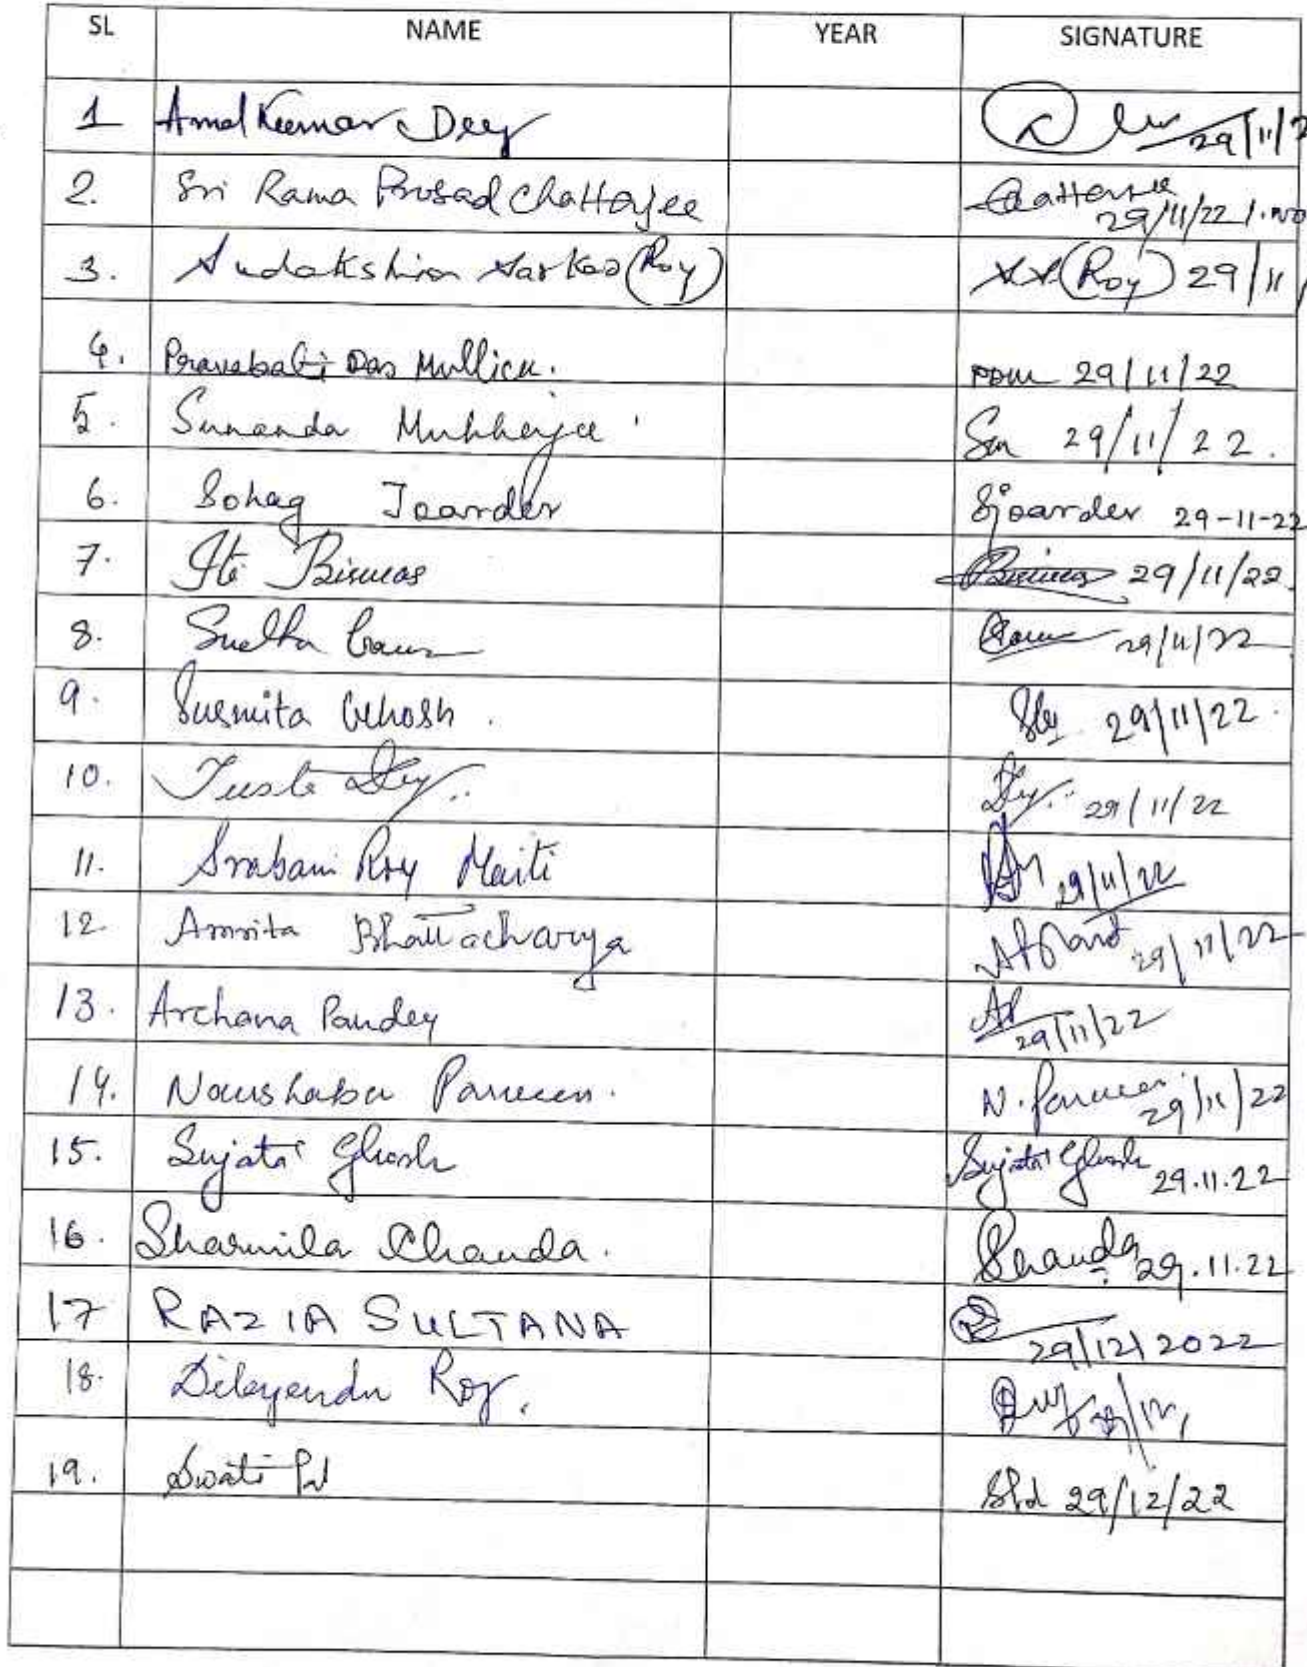 SL NAME YEAR SIGNATURE
1 Amal Kumar Dey 29/11/2
2. Sri Rama Prosad Chatterjee Chatterjee
29/11/22
3. Sudakshina Sarkar (Roy) SS (Roy) 29/11/
4. Pravabati Das Mullick. PDM 29/11/22
5. Sunanda Mukherjee Sm 29/11/22.
6. Sohag Joarder Sjoarder 29-11-22
7. Iti Biswas Biswas 29/11/22
8. 29/11/22
9. Susmita Ghosh. 29/11/22.
10. Dey.. Dey.. 29/11/22
11. Srabani Roy Maiti 29/11/22
12. Amrita Bhattacharya 29/11/22
13. Archana Pandey AP
29/11/22
14. Naushaba Parveen. N. Parveen
29/11/22
15. Sujata Ghosh Sujata Ghosh 29.11.22
16. Sharmila Chanda. Chanda 29.11.22
17 RAZIA SULTANA 29/12/2022
18. Roy.
19. Swati Pal SPal 29/12/22